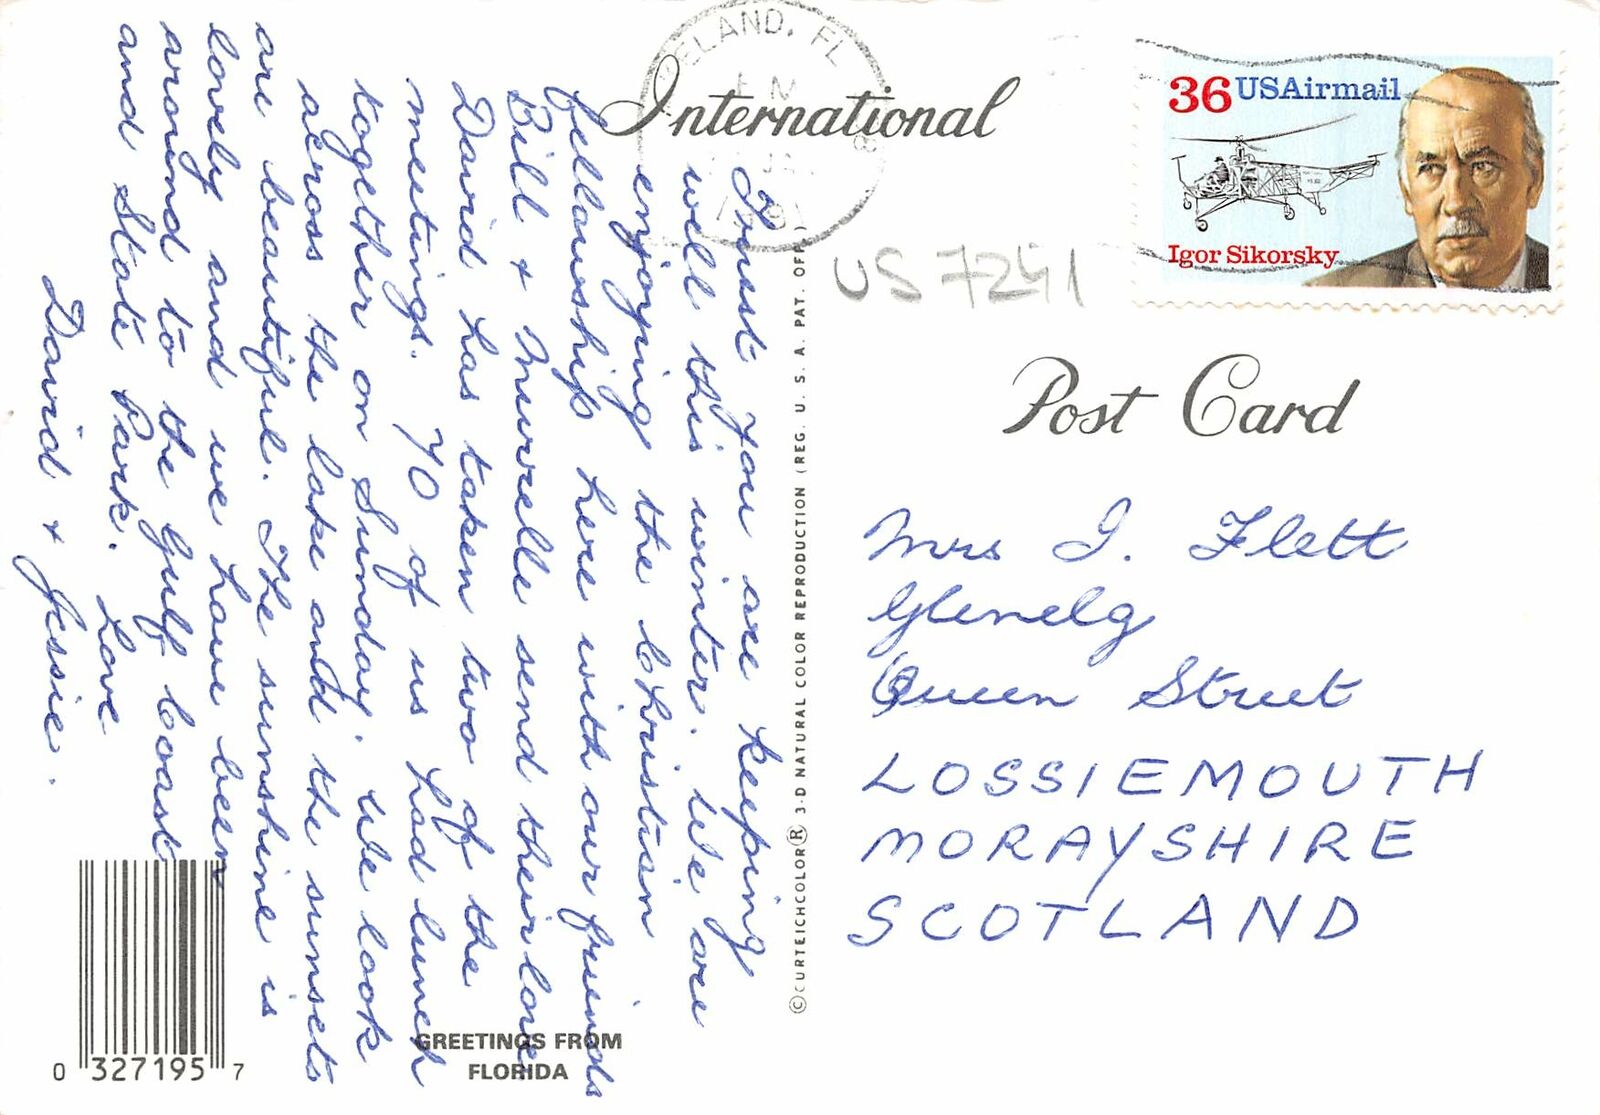 International
Post Card
36 USAirmail
Igor Sikorsky
ELAND, FL
US 7241
Trust you are keeping
well this winter. We are
enjoying the Christian
fellowship here with our friends
Bill + Murielle send their love
David has taken two of the
meetings. 70 of us had lunch
together on Sunday. We look
across the lake and the sunsets
are beautiful. The sunshine is
lovely and we have been
around to the Gulf Coast
and State Park.
Love
David + Jessie.
Mrs I. Flett
Glenelg
Queen Street
LOSSIEMOUTH
MORAYSHIRE
SCOTLAND
© CURTEICHCOLOR® 3-D NATURAL COLOR REPRODUCTION (REG. U. S. A. PAT. OFF.)
GREETINGS FROM
FLORIDA
0 327195 7